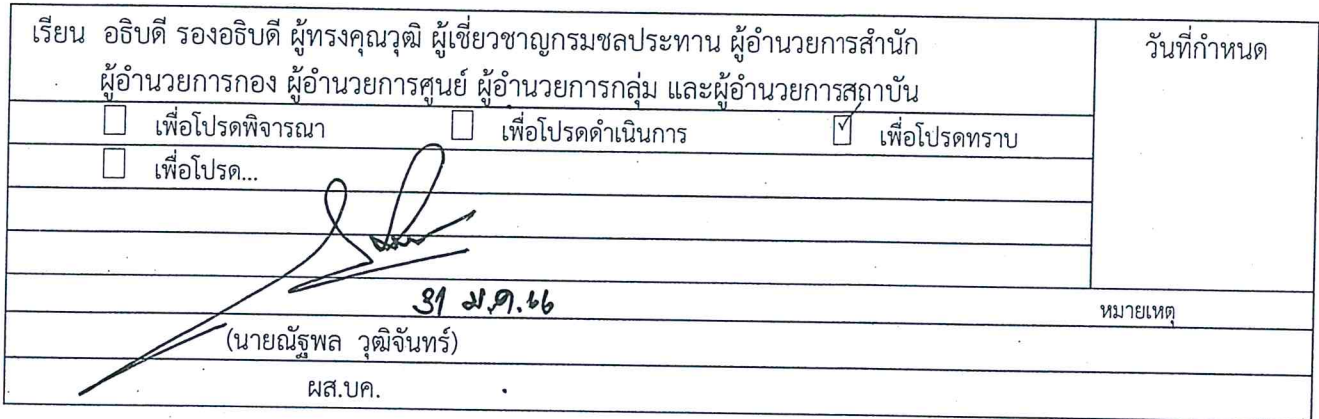 เรียน อธิบดี รองอธิบดี ผู้ทรงคุณวุฒิ ผู้เชี่ยวชาญกรมชลประทาน ผู้อำนวยการสำนัก วันที่กำหนด
ผู้อำนวยการกอง ผู้อำนวยการศูนย์ ผู้อำนวยการกลุ่ม และผู้อำนวยการสถาบัน
เพื่อโปรดพิจารณา เพื่อโปรดดำเนินการ เพื่อโปรดทราบ
เพื่อโปรด...
31 ม.ค. 66
หมายเหตุ
(นายณัฐพล วุฒิจันทร์)
ผส.บค.